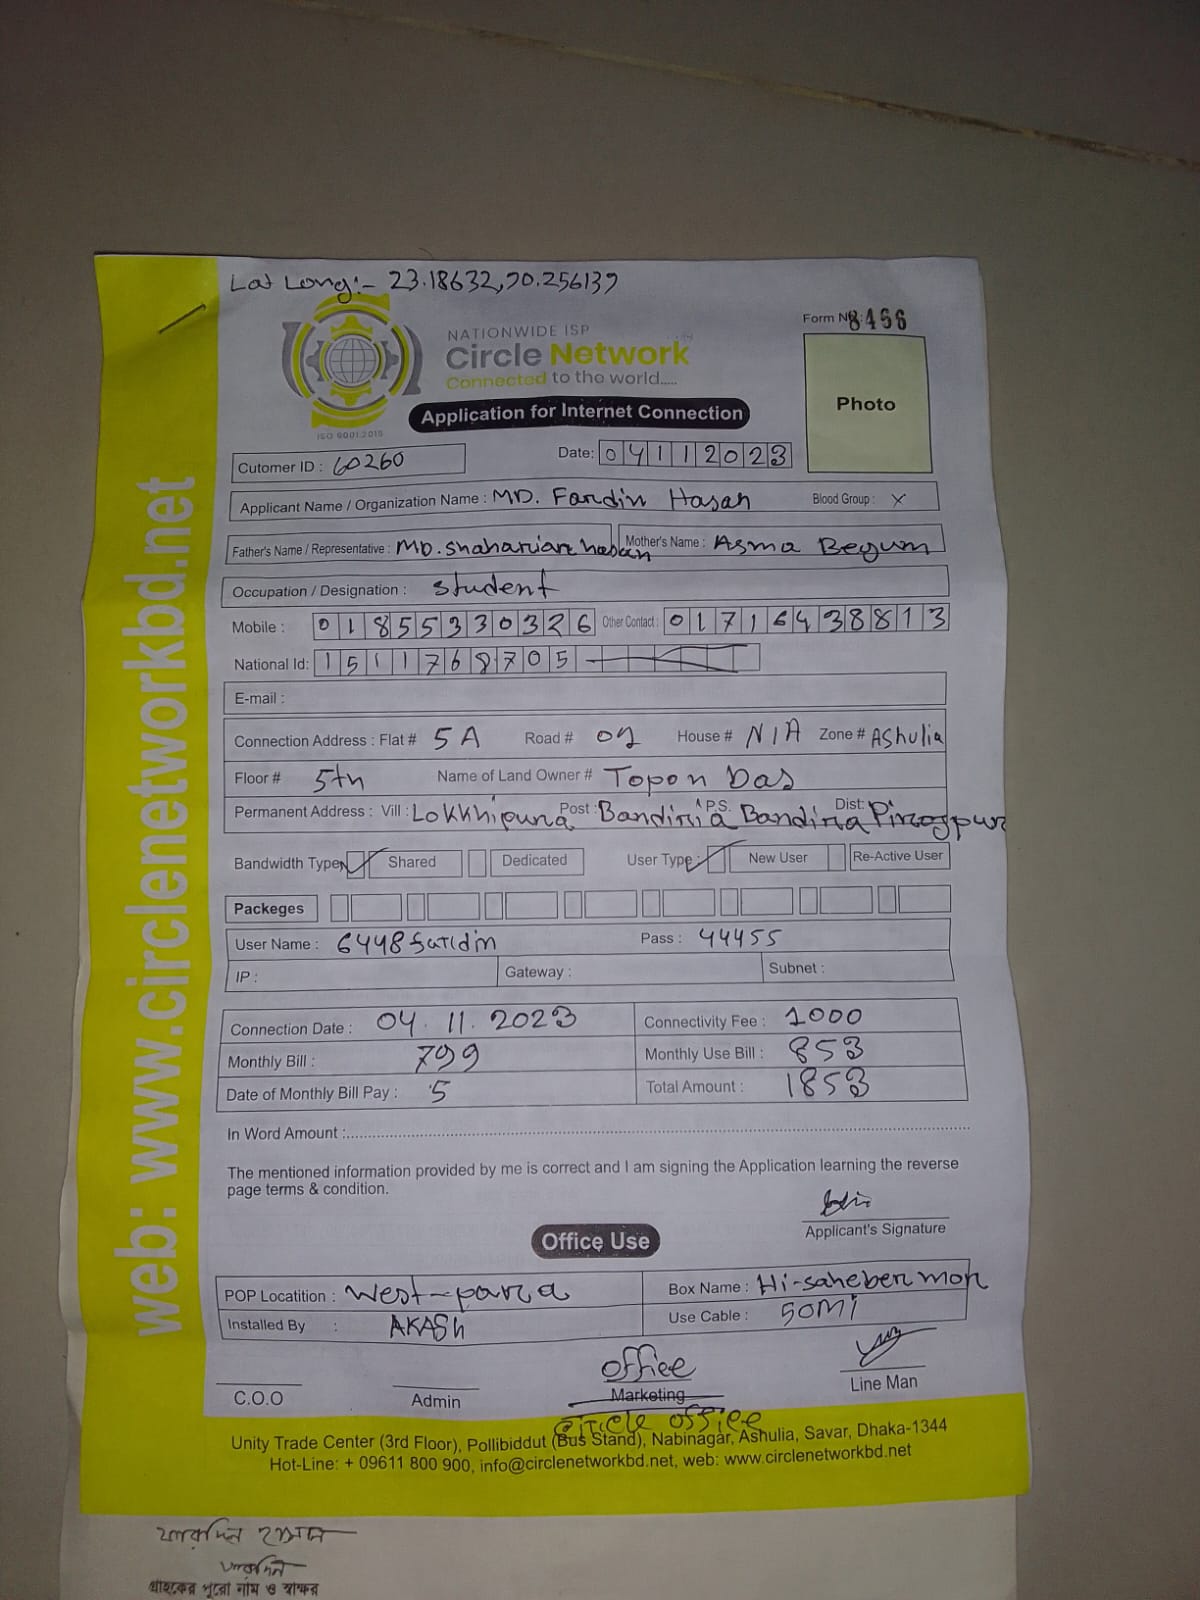 Lat Long:- 23.18632,90.256139
Form No: 8466
NATIONWIDE ISP
Circle Network
Connected to the world.....
ISO 9001:2015
Application for Internet Connection
Photo
Cutomer ID : 60260
Date: 04112023
Applicant Name / Organization Name : MD. Fardin Hasan Blood Group : X
Father's Name / Representative : MD. Shahariare hasan Mother's Name : Asma Begum
Occupation / Designation : Student
Mobile : 01855330326 Other Contact : 01716438813
National Id: 1511768705
E-mail :
Connection Address : Flat # 5A Road # 01 House # N/A Zone # Ashulia
Floor # 5th Name of Land Owner # Topon Das
Permanent Address : Vill : Lokkhipura Post : Bandiria P.S. Bandiria Dist: Pirogpur
Bandwidth Type Shared Dedicated User Type : New User Re-Active User
Packeges
User Name : 6448fardin Pass : 44455
IP : Gateway : Subnet :
Connection Date : 04.11.2023 Connectivity Fee : 1000
Monthly Bill : 799 Monthly Use Bill : 853
Date of Monthly Bill Pay : 5 Total Amount : 1853
In Word Amount :
The mentioned information provided by me is correct and I am signing the Application learning the reverse
page terms & condition.
Applicant's Signature
Office Use
POP Locatition : West-para Box Name : Hi-saheber mor
Installed By : AKASh Use Cable : 50Mi
office
C.O.O Admin Marketing Line Man
circle office
Unity Trade Center (3rd Floor), Pollibiddut (Bus Stand), Nabinagar, Ashulia, Savar, Dhaka-1344
Hot-Line: + 09611 800 900, info@circlenetworkbd.net, web: www.circlenetworkbd.net
web: www.circlenetworkbd.net
ফারদিন হাসান
ফারদিন
গ্রাহকের পুরো নাম ও স্বাক্ষর